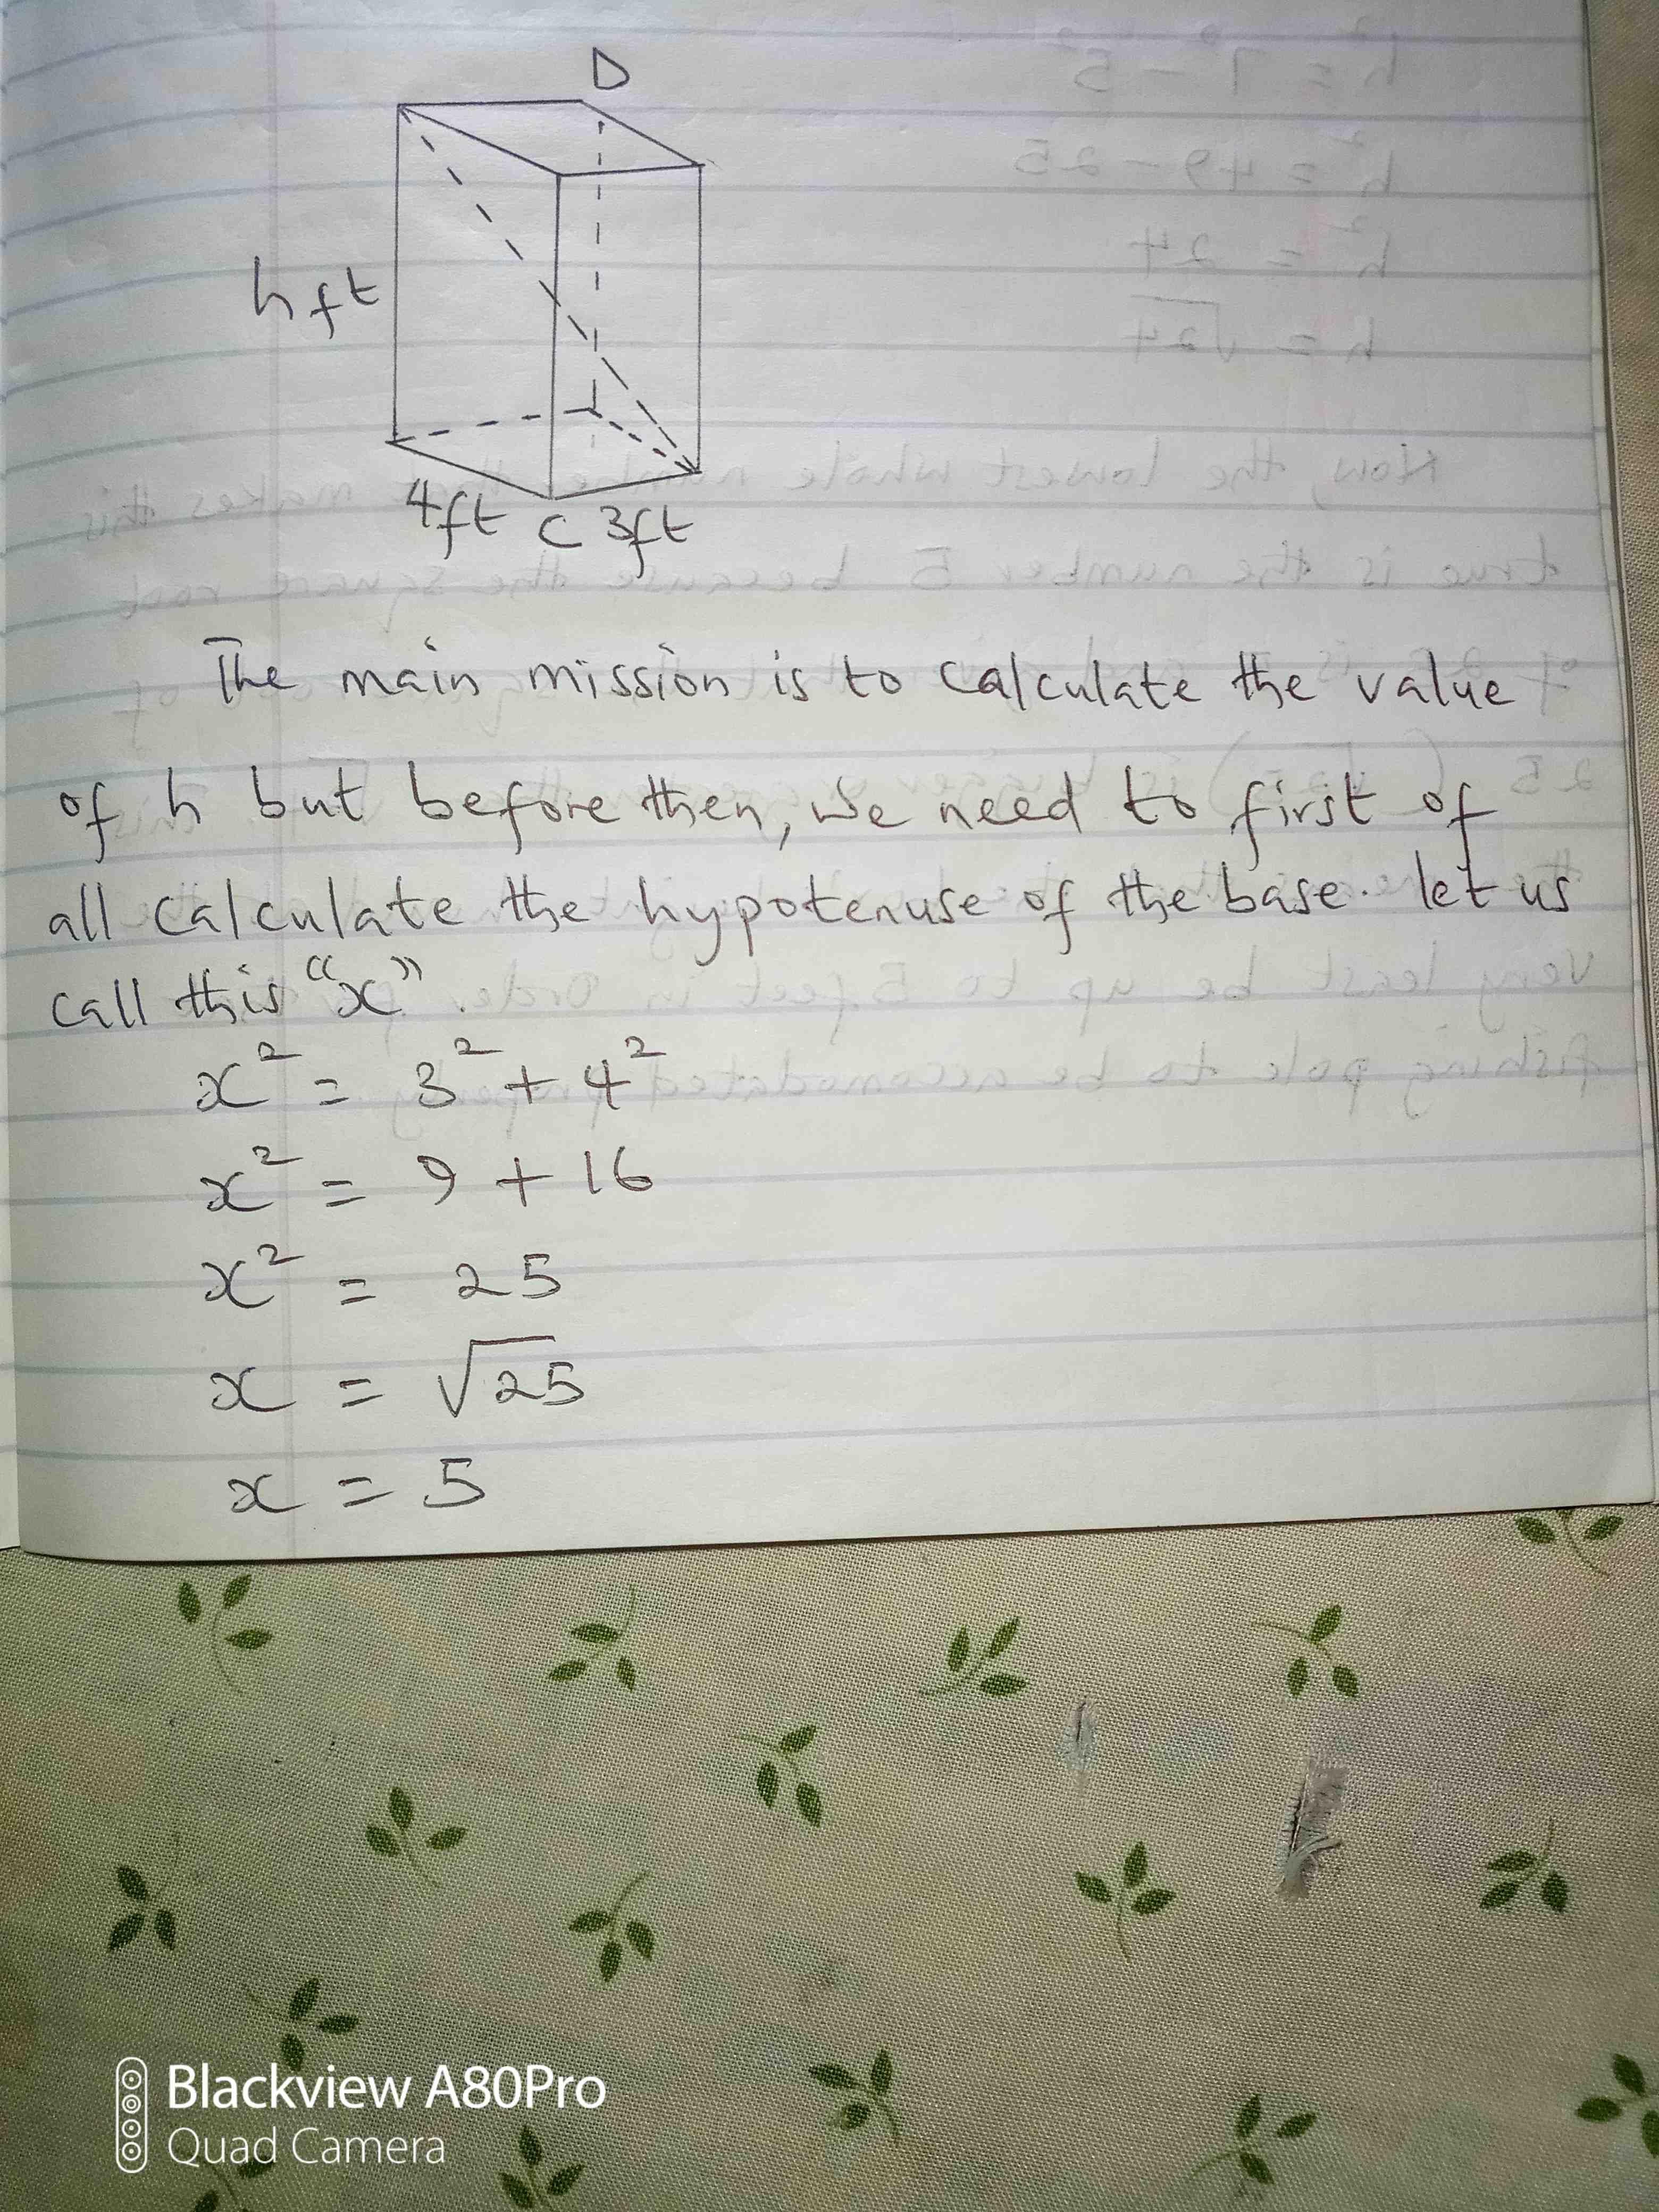 D
h ft
4ft C 3ft
The main mission is to calculate the value
of h but before then, we need to first of
all calculate the hypotenuse of the base. let us
call this "x"
x² = 3² + 4²
x² = 9 + 16
x² = 25
x = √25
x = 5
Blackview A80Pro
Quad Camera